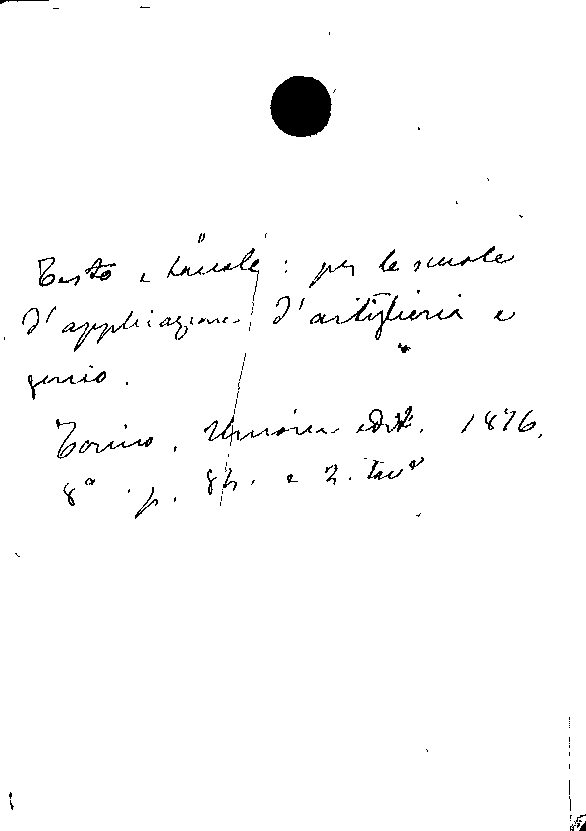 Testo e tavole : per le scuole
d'applicazione d'artiglieria e
genio.
Torino. Unione edit. 1876.
8° p. 82. e 2. tav